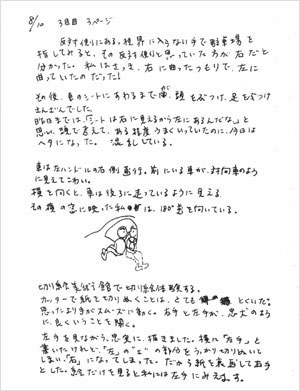 8/10 3日目 3ページ
反対側にある。視界に入らない手で駐車場を
指してみると、その反対側と思っていた方が右だと
分かった。私はさっき、右に曲ったつもりで、左に
曲っていたのだった!
その後、車のシートにすわるまで、頭をぶつけ、足をぶつけ
さんざんでした。
昨日までは、「シートは右に見えるから左にあるんだな。」と
思い、頭で考えて、ある程度うまくいっていたのに、今日は
ヘタになった。混乱している。
車は左ハンドルの右側通行。前にいる車が、対向車のよう
に見えてこわい。
横を向くと、車は後ろに走っているように見える。
その横の窓に映った私は、180°前を向いている。
切り絵を体験する。
カッターで紙を切りぬくことは、とても とくいだ。
思ったより手がスムーズに動く。右手と左手が、忠犬のよう
に、良くいうことを聞く。
左手を見ながら、忠実に、描きました。横に「左手」と
書いたけれど、"左"の"エ"の部分をうっかり切りぬいて
しまい、「右」になってしまった。だから紙を裏返して右手
とした。絵だけを見ると私には左手にみえます。